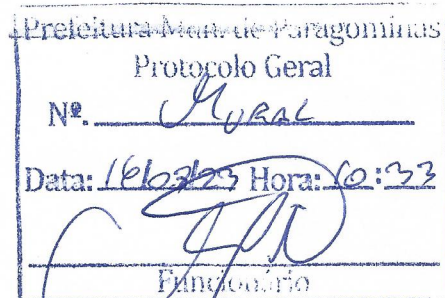 Prefeitura Mun. de Paragominas
Protocolo Geral
Nº. MURAL
Data: 16/03/23 Hora: 10:33
Funcionário